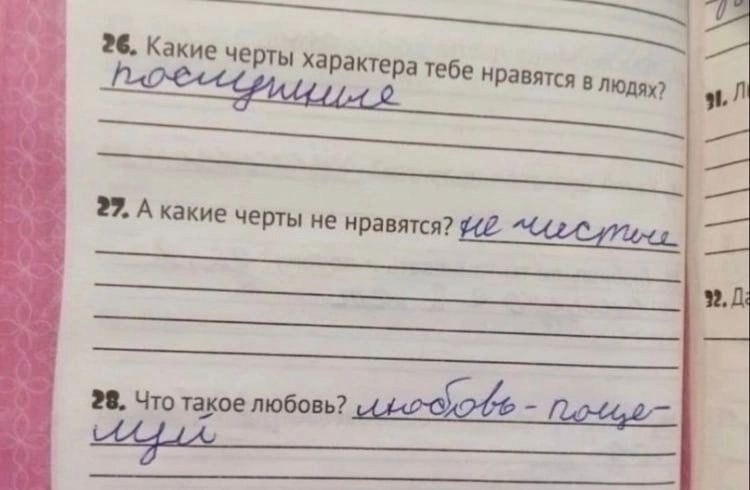 26. Какие черты характера тебе нравятся в людях?
послушные
27. А какие черты не нравятся? не чистые
28. Что такое любовь? любовь - поце-
луй
31.
32. Да